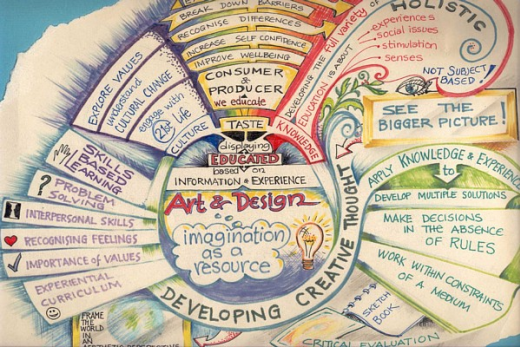 BREAK DOWN BARRIERS
RECOGNISE DIFFERENCES
INCREASE SELF CONFIDENCE
IMPROVE WELLBEING
CONSUMER
&
PRODUCER
we educate
TASTE
displaying
EDUCATED
based on
INFORMATION & EXPERIENCE
Art & Design
imagination
as a
resource
DEVELOPING CREATIVE THOUGHT
EXPLORE VALUES
understand
CULTURAL CHANGE
engage with
21st Life
CULTURE
DEVELOPING THE full variety of
EDUCATION IS ABOUT
KNOWLEDGE
HOLISTIC
experiences
social issues
stimulation
senses
NOT SUBJECT
BASED!
SEE THE
BIGGER PICTURE!
SKILLS
BASED
LEARNING
?
PROBLEM
SOLVING
INTERPERSONAL SKILLS
RECOGNISING FEELINGS
IMPORTANCE of VALUES
EXPERIENTIAL
CURRICULUM
APPLY KNOWLEDGE & EXPERIENCE
to
DEVELOP MULTIPLE SOLUTIONS
MAKE DECISIONS
IN THE ABSENCE
OF RULES
WORK WITHIN CONSTRAINTS
OF A MEDIUM
SKETCH
BOOK
CRITICAL EVALUATION
FRAME
THE WORLD
IN
AN